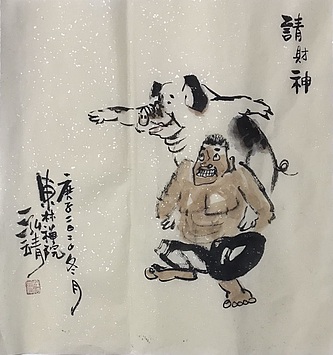 請財神
庚子二〇二〇冬月
東林禪院